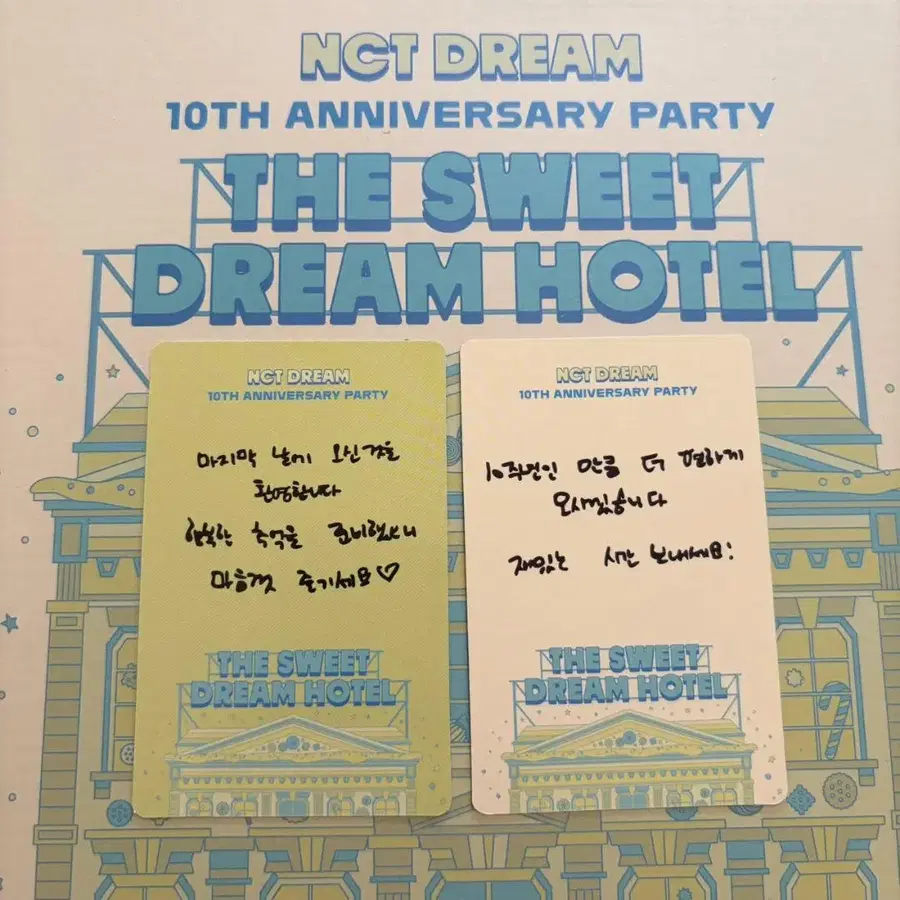 NCT DREAM
10TH ANNIVERSARY PARTY
THE SWEET
DREAM HOTEL
NCT DREAM
10TH ANNIVERSARY PARTY
마지막 날에 오신것을
환영합니다
행복한 추억을 준비했으니
마음껏 즐기세요♡
THE SWEET
DREAM HOTEL
NCT DREAM
10TH ANNIVERSARY PARTY
10주년인 만큼 더 편하게
모시겠습니다
재밌는 시간 보내세요!
THE SWEET
DREAM HOTEL